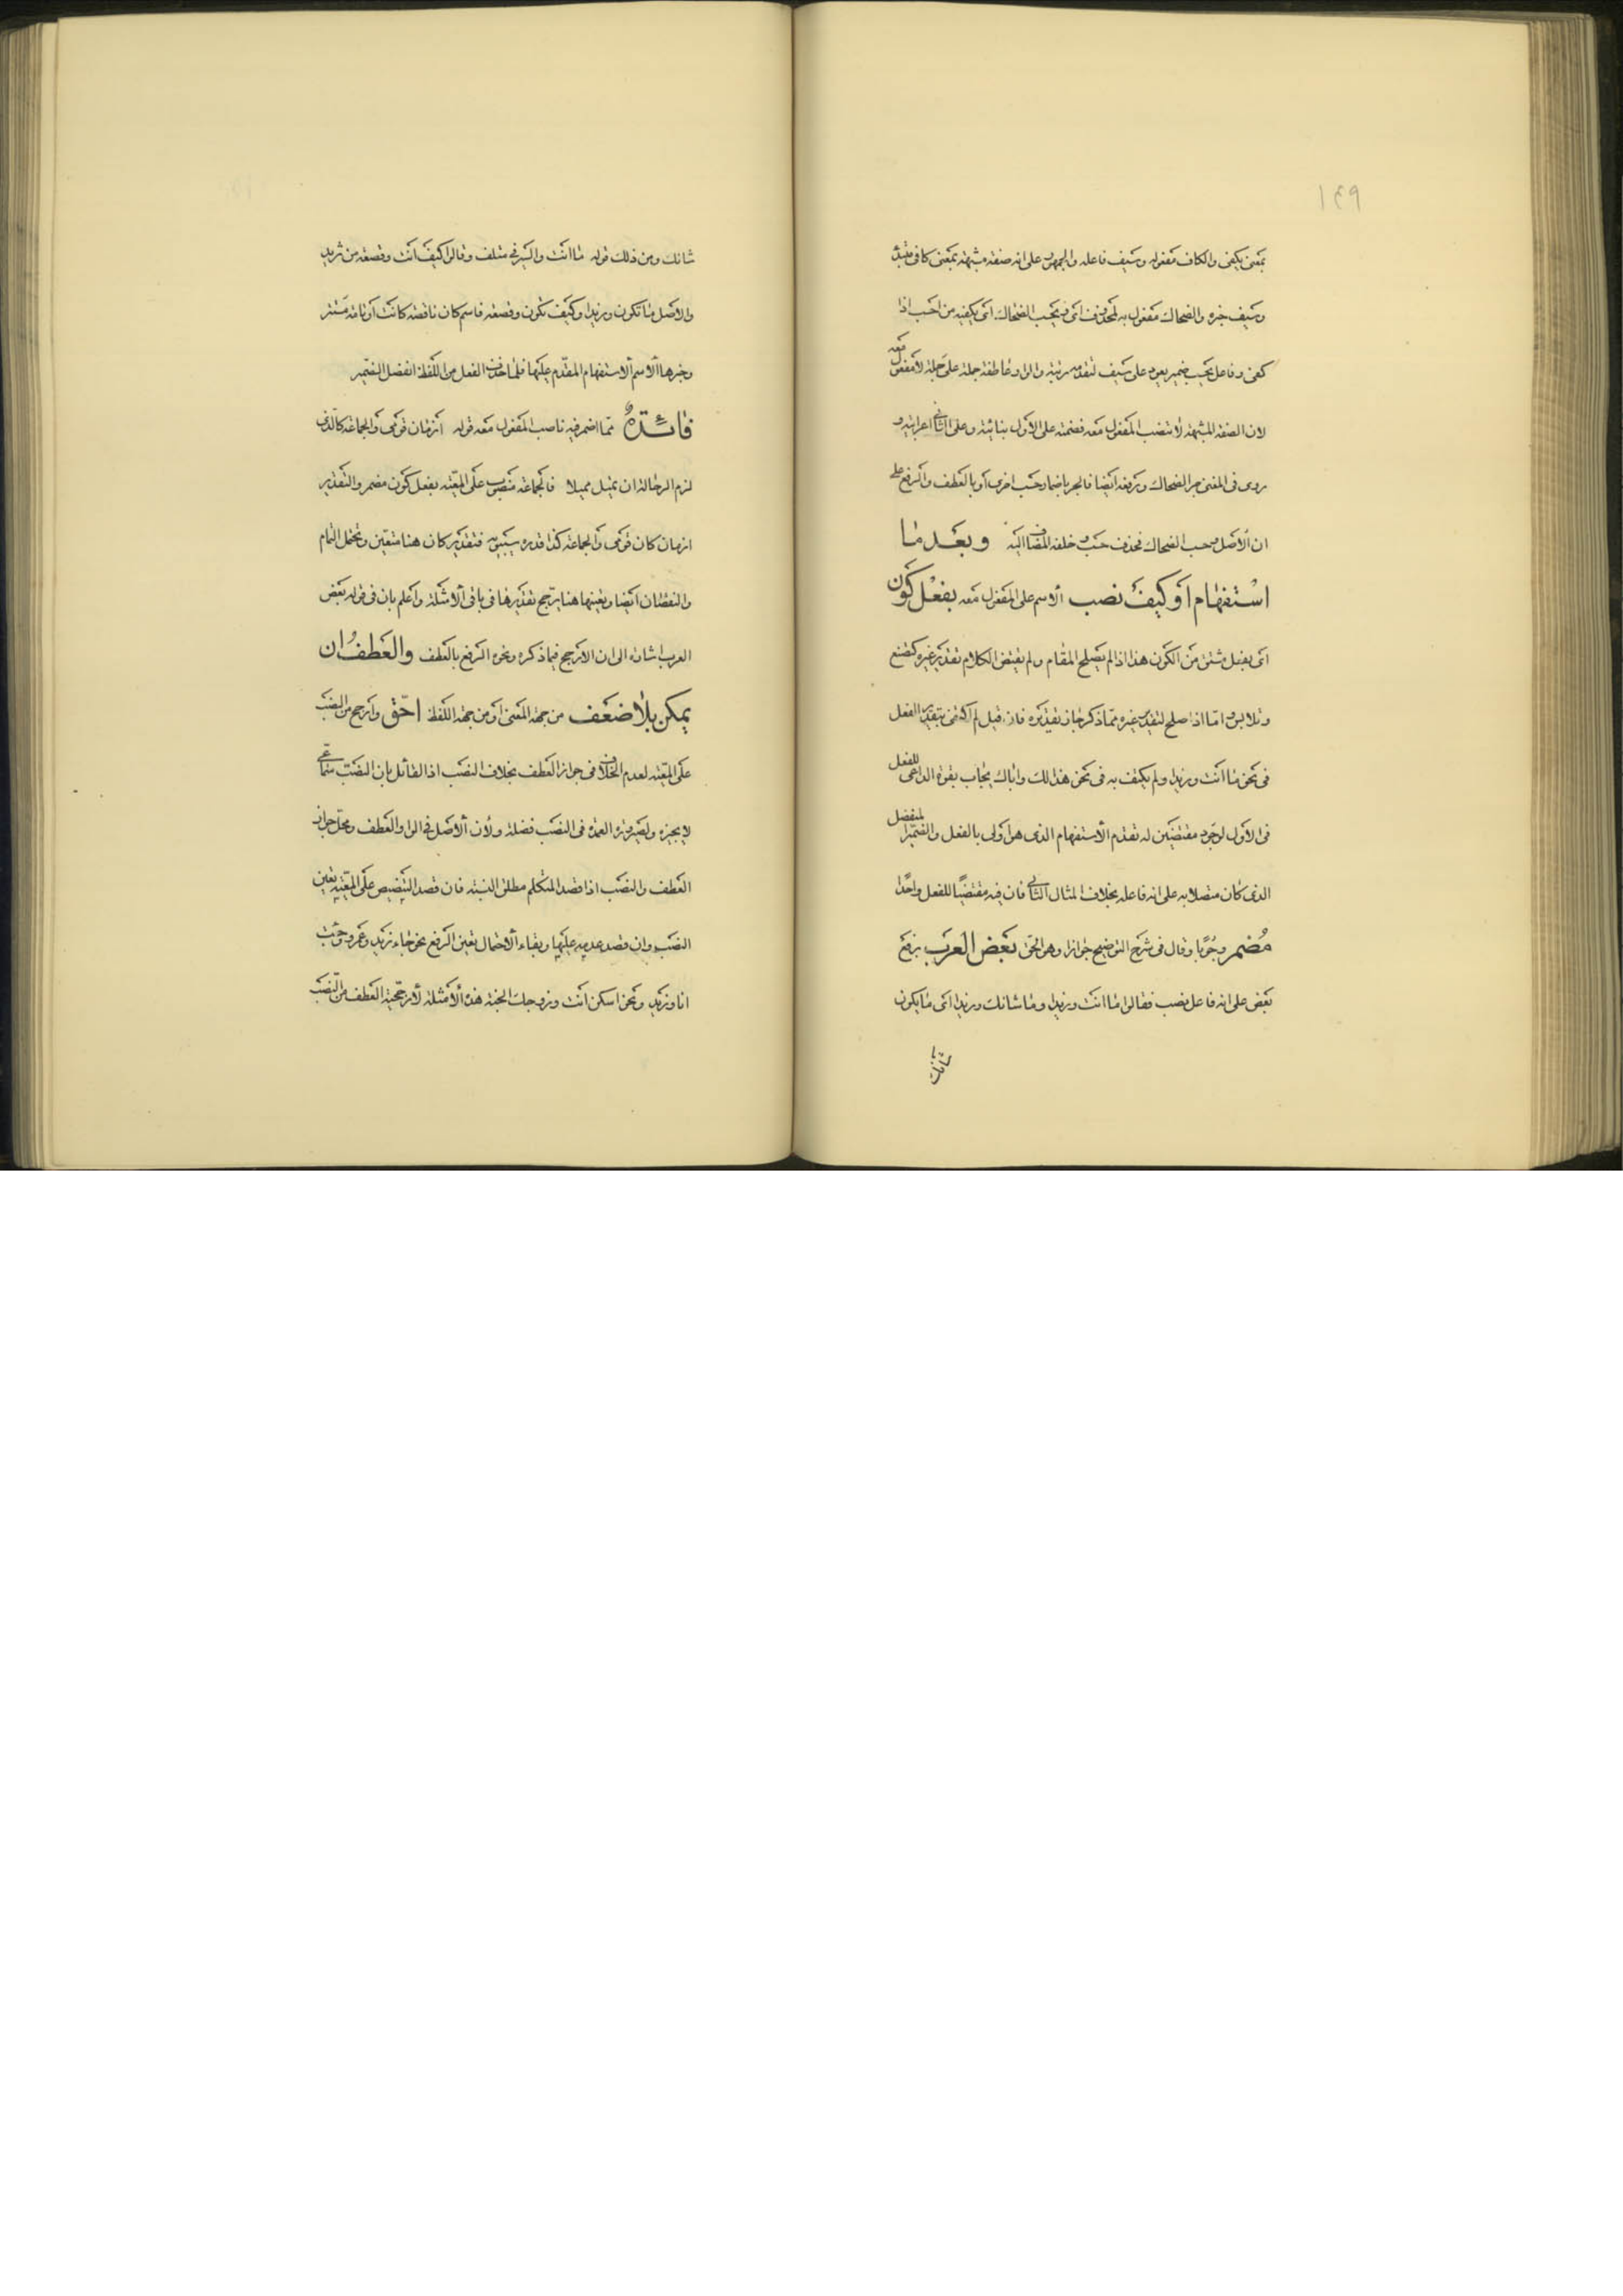 ١٤٩
بمعنى يكفى والكاف مفعوله وسيف فاعله والجمهور على انه صفة مشبهة بمعنى كاف مبتدأ
وسيف خبره والضحاك مفعول به لمحذوف اى ويحسب الضحاك اى يكفيه من احسب اذا
كفى وفاعل يحسب ضمير يعود على سيف لتقدمه رتبة والواو عاطفة جملة على جملة لا مفعول معه
لان الصفة المشبهة لا تنصب المفعول معه فضمته على الاول بنائية وعلى الثانى اعرابية و
روى فى المغنى جر الضحاك ورفعه ايضا فالجر باضمار حسب اخرى او بالعطف والرفع على
ان الاصل وحسب الضحاك فحذف حسب وخلفه المضاف اليه وبعد ما
استفهام او كيف نصب الاسم على المفعول معه بفعل كون
اى بفعل مشتق من الكون هذا اذا لم يصلح المقام ولم يقتض الكلام تقدير غيره كتصنع
وتلابس اما اذا صلح لتقدير غيره مما ذكر جاز تقديره فان قيل لم اكتفى بتقدير الفعل
فى نحو ما انت وزيدا ولم يكتف به فى نحو هذا لك واباك يجاب بقوة الداعى للفعل
فى الاول لوجود مقتضيين له تقدم الاستفهام الذى هو اولى بالفعل والضمير المنفصل
الذى كان متصلا به على انه فاعله بخلاف المثال الثانى فان فيه مقتضيا للفعل واحدا
مضمر وجوبا وقال فى شرح التوضيح جوازا وهو الحق بعض العرب برفع
بعض على انه فاعل نصب فقالوا ما انت وزيدا وما شانك وزيدا اى ما يكون
شانك
شانك ومن ذلك قوله ما انت والسير فى متلف وقالوا كيف انت وقصعة من ثريد
والاصل ما تكون وزيدا وكيف تكون وقصعة فاسم كان ناقصة كانت او تامة مستتر
وخبرها الاسم الاستفهام المقدم عليها فلما حذف الفعل من اللفظ انفصل الضمير
فائدة مما اضمر فيه ناصب المفعول معه قوله ازمان قومى والجماعة كالذى
لزم الرحالة ان تميل مميلا فالجماعة منصوب على المعية بفعل كون مضمر والتقدير
ازمان كان قومى والجماعة كذا قدره سيبويه فتقدير كان هنا متعين وتحتمل التمام
والنقصان ايضا وتعينها هنا يرجح تقديرها فى باقى الامثلة واعلم بان فى قوله بعض
العرب اشارة الى ان الارجح فيما ذكره ونحوه الرفع بالعطف والعطف ان
يمكن بلا ضعف من جهة المعنى او من جهة اللفظ احق وارجح من النصب
على المعية لعدم الخلاف فى جواز العطف بخلاف النصب اذ القائل بان النصب سماعى
لا يجيزه ولصيرورة العمدة فى النصب فضلة ولان الاصل فى الواو العطف ومحل جواز
العطف والنصب اذا قصد المتكلم مطلق النسبة فان قصد التنصيص على المعية تعين
النصب وان قصد عدمه عليها وبقاء الاحتمال تعين الرفع نحو جاء زيد وعمرو وجئت
انا وزيد ونحو اسكن انت وزوجك الجنة هذه الامثلة لارجحية العطف من النصب